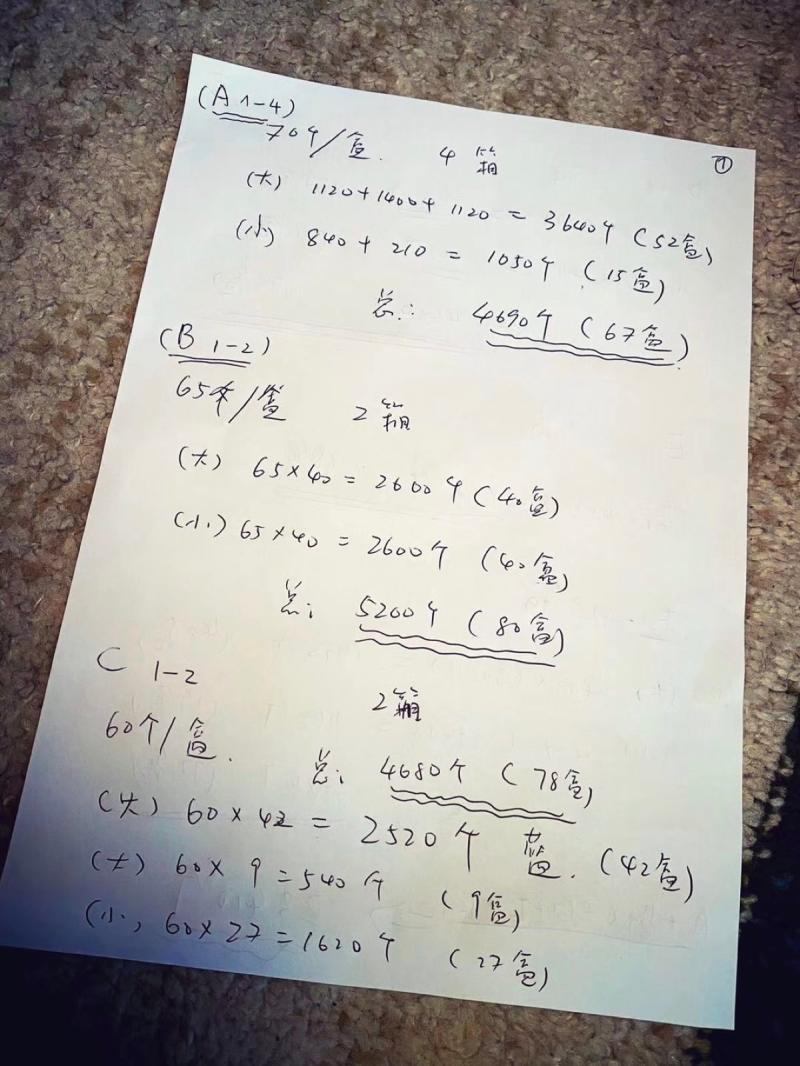 ①
(A 1-4)
70个/盒. 4箱
(大) 1120+1400+1120 = 3640个 (52盒)
(小) 840 + 210 = 1050个 (15盒)
总: 4690个 (67盒)
(B 1-2)
65个/盒 2箱
(大) 65×40 = 2600个 (40盒)
(小) 65×40 = 2600个 (40盒)
总: 5200个 (80盒)
C 1-2
2箱
60个/盒. 总: 4680个 (78盒)
(大) 60×42 = 2520个 蓝. (42盒)
(大) 60×9=540个 (9盒)
(小) 60×27=1620个 (27盒)